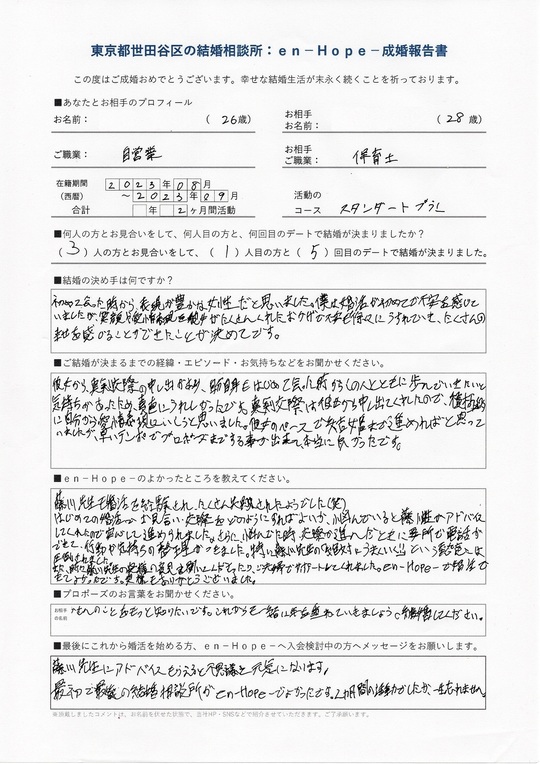 東京都世田谷区の結婚相談所：en－Hope－成婚報告書
この度はご成婚おめでとうございます。幸せな結婚生活が末永く続くことを祈っております。
■あなたとお相手のプロフィール
お名前： （ 26歳）
お相手 お名前： （ 28歳）
ご職業： 自営業
お相手 ご職業： 保育士
在籍期間（西暦） 2023年08月
～2023年09月
合計 年 2ヶ月間活動
活動のコース スタンダードプラン
■何人の方とお見合いをして、何人目の方と、何回目のデートで結婚が決まりましたか？
（ 3 ）人の方とお見合いをして、（ 1 ）人目の方と（ 5 ）回目のデートで結婚が決まりました。
■結婚の決め手は何ですか？
初めて会った時から、表現が豊かな女性だと思いました。僕は婚活が初めてで不安を感じて
いましたが、笑顔や愛情表現を相手がたくさんくれたおかげで不安も徐々にうすれていき、たくさんの
幸せを感じることができたことが決めてです。
■ご結婚が決まるまでの経緯・エピソード・お気持ちなどをお聞かせください。
彼女から、真剣交際の申し出があり、
気持ちがあったため、素直にうれしかったです。真剣交際は彼女から申し出てくれたので、積極的
に自分から愛情表現はいこうと思いました。彼女のペースで
いましたが、早い段階でプロポーズまでする事が出来て、本当に良かったです。
■en－Hope－のよかったところを教えてください。
藤川先生も婚活を経験され、たくさん失敗されたようでした(笑)
はじめての婚活でお見合い、交際をどのようにすればよいか、悩んでいると藤川先生がアドバイス
してくれたので安心して進められました。さらに悩んでいた時、交際が進んだときに事務所で電話が
できて、行動や気持ちの整理ができました。
en-Hope-で婚活が
できてよかったです。
■プロポーズのお言葉をお聞かせください。
お相手のお名前 さんのことをもっと知りたいです。これからも一緒に年を重ねていきましょう。結婚してください。
■最後にこれから婚活を始める方、en－Hope－へ入会検討中の方へメッセージをお願いします。
藤川先生にアドバイスもらえると不思議と元気になります。
最初で最後の結婚相談所がen-Hope-でよかったです。2カ月間の活動でしたが、一生忘れません。
※頂戴しましたコメントは、お名前を伏せた状態で、当社HP・SNSなどで紹介させていただきます。ご了承願います。